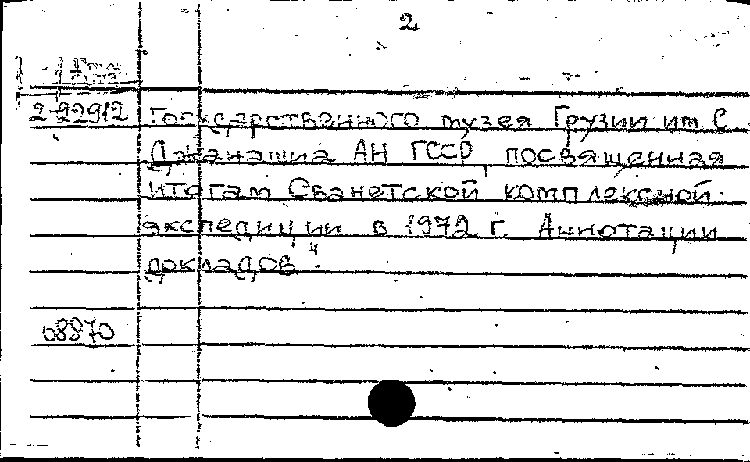 2
2-92912 Государственного музея Грузии им С
Джанашиа АН ГССР, посвященная
итогам Сванетской комплексной
экспедиции в 1972 г. Аннотации
докладов
08870